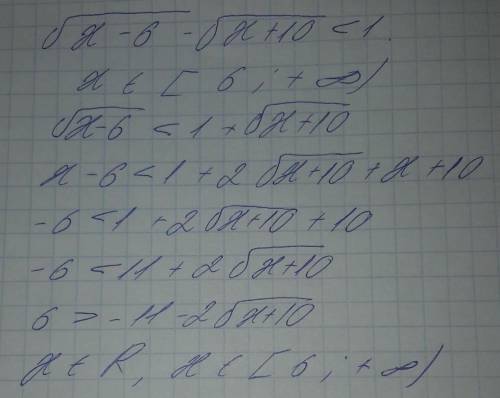 √x-6 - √x+10 < 1.
x ∈ [ 6 ; + ∞)
√x-6 < 1 + √x+10
x - 6 < 1 + 2 √x+10 + x + 10
-6 < 1 + 2√x+10 + 10
-6 < 11 + 2√x+10
6 > - 11 - 2√x+10
x ∈ R, x ∈ [6 ; + ∞)